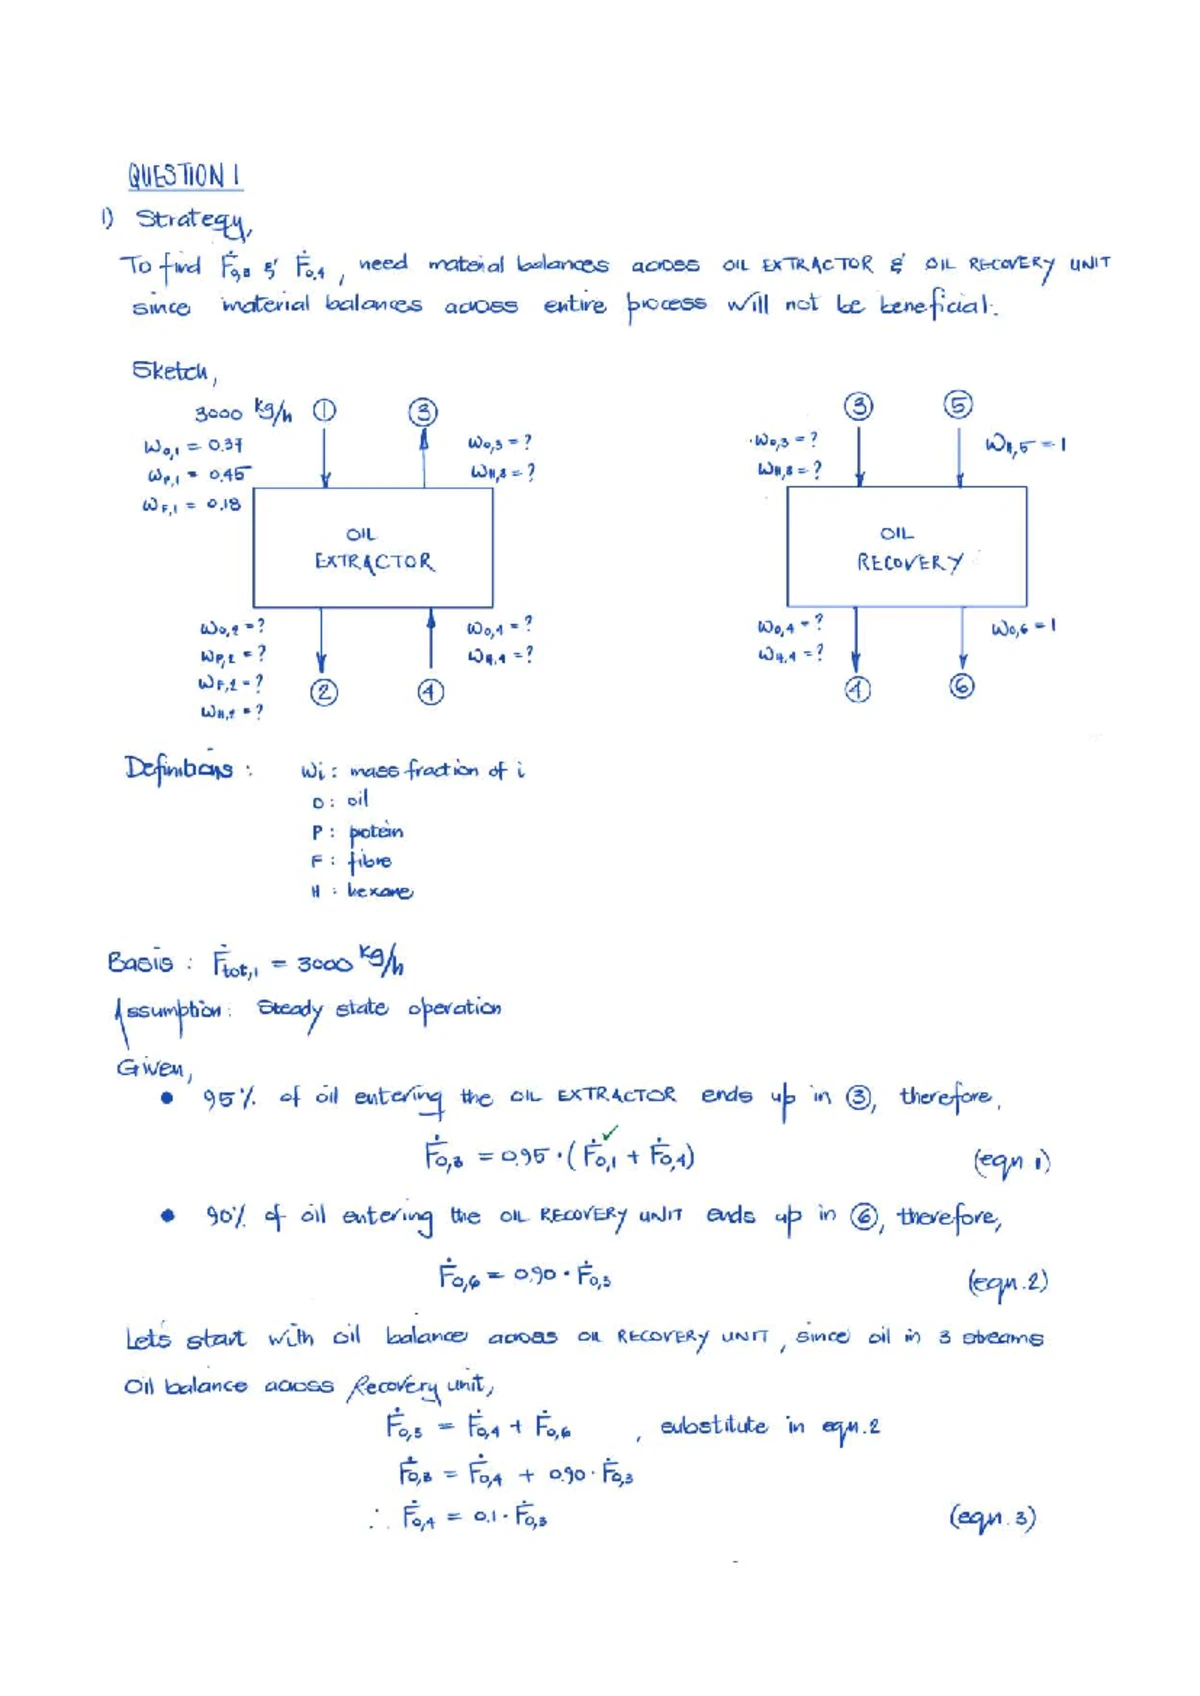 QUESTION 1
1) Strategy,
To find Ḟ0,3 & Ḟ0,4, need material balances across OIL EXTRACTOR & OIL RECOVERY UNIT
since material balances across entire process will not be beneficial.
Sketch,
3000 kg/h ① ③
W0,1 = 0.37
WP,1 = 0.45
WF,1 = 0.18
W0,3 = ?
WH,3 = ?
OIL
EXTRACTOR
W0,2 = ?
WP,2 = ?
WF,2 = ?
WH,2 = ?
W0,4 = ?
WH,4 = ?
② ④
③ ⑤
W0,3 = ?
WH,3 = ?
WH,5 = 1
OIL
RECOVERY
W0,4 = ?
WH,4 = ?
W0,6 = 1
④ ⑥
Definitions : Wi : mass fraction of i
O : oil
P : potein
F : fibre
H : hexane
Basis : Ḟtot,1 = 3000 kg/h
Assumption: Steady state operation
Given,
• 95% of oil entering the OIL EXTRACTOR ends up in ③, therefore,
Ḟ0,3 = 0.95 · (Ḟ0,1 + Ḟ0,4) (eqn 1)
• 90% of oil entering the OIL RECOVERY UNIT ends up in ⑥, therefore,
Ḟ0,6 = 0.90 · Ḟ0,3 (eqn.2)
Lets start with oil balance across OIL RECOVERY UNIT, since oil in 3 streams
Oil balance across Recovery unit,
Ḟ0,3 = Ḟ0,4 + Ḟ0,6 , substitute in eqn.2
Ḟ0,3 = Ḟ0,4 + 0.90 · Ḟ0,3
∴ Ḟ0,4 = 0.1 · Ḟ0,3 (eqn. 3)